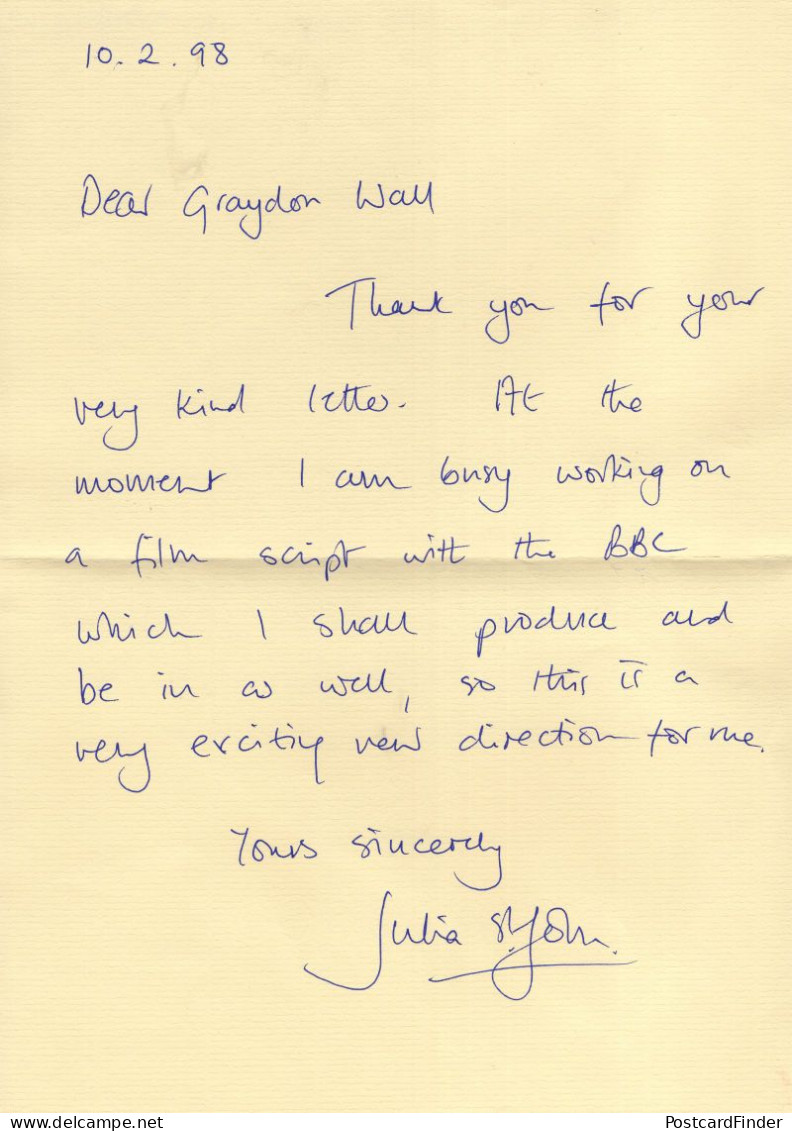 10. 2. 98
Dear Graydon Wall
Thank you for your
very kind letter. At the
moment I am busy working on
a film script with the BBC
which I shall produce and
be in as well, so this is a
very exciting new direction for me.
Yours sincerely
Julia St. John.
delcampe.net
PostcardFinder